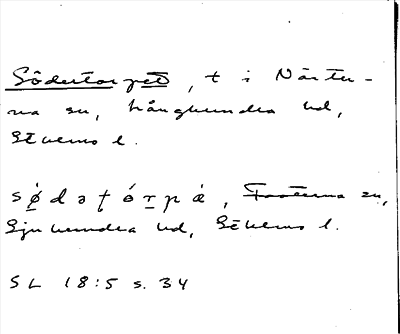 Södertorpet, t i Närtu-
na sn, Långhundra hd,
Sthlms l.
sǿ̣dəƫó̱rpǽ, Fasterna sn,
Sjuhundra hd, Sthlms l.
SL 18:5 s. 34